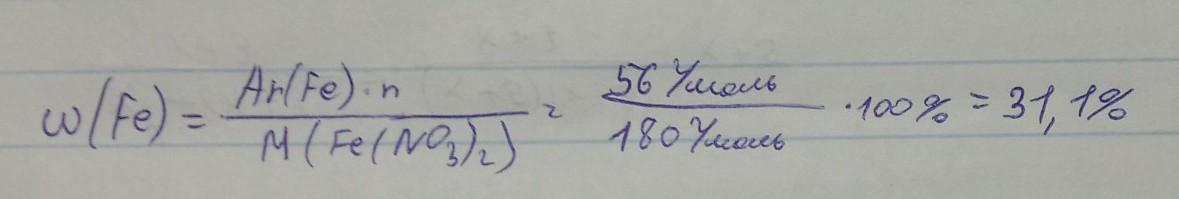 w(Fe) = Ar(Fe)·n / M(Fe(NO₃)₂) = 56 г/моль / 180 г/моль ·100% = 31,1%